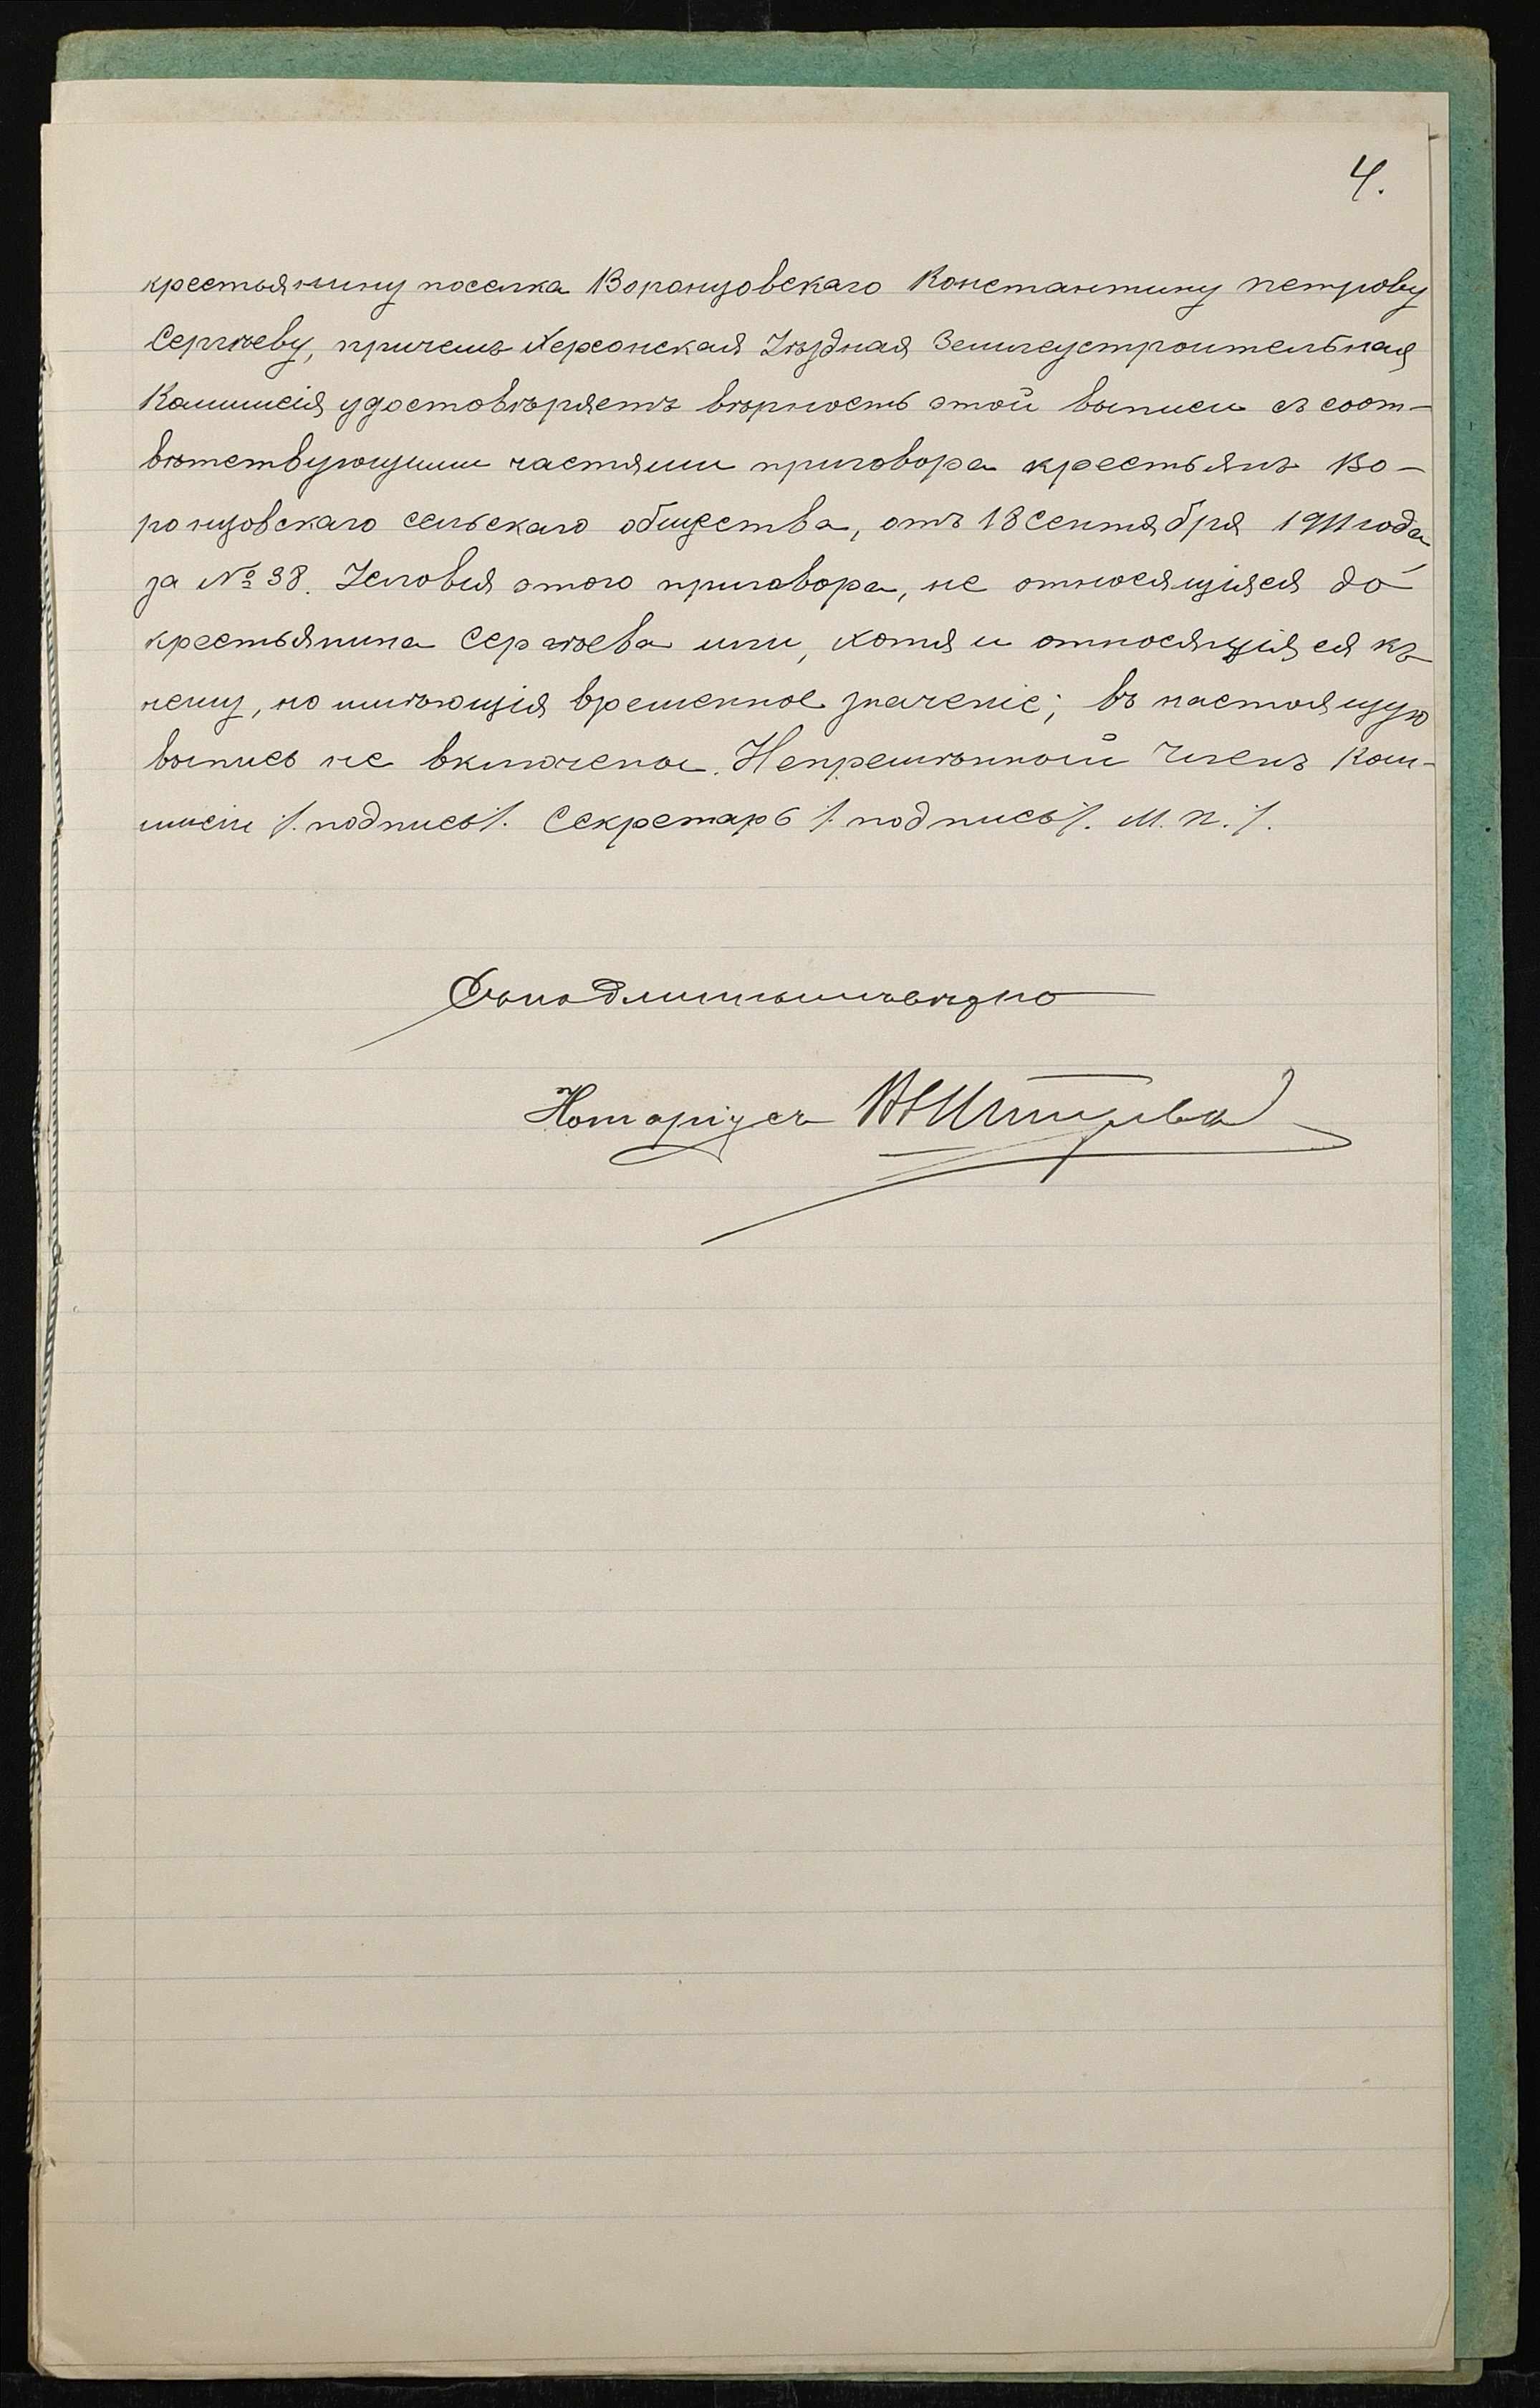 4.
крестьянину поселка Воронцовскаго Константину Петрову
Сергѣеву, причемъ Херсонская Уѣздная Землеустроительная
Коммисія удостовѣряетъ вѣрность этой выписи съ соот-
вѣтствующими частями приговора крестьянъ Во-
ронцовскаго сельскаго общества, отъ 18 Сентября 1911 года
за № 38. Условія этого приговора, не относящіяся до
крестьянина Сергѣева или, хотя и относящіяся къ
нему, но имѣющія временное значеніе; въ настоящую
выпись не включены. Непремѣнный Членъ Ком-
мисіи /. подпись/. Секретарь /. подпись/. М. П. /.
Съ подлиннымъ вѣрно
Нотаріусъ